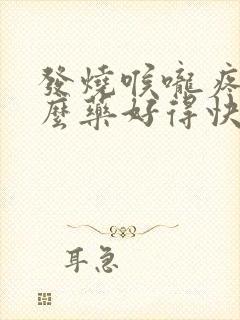 發燒喉嚨疼
麼藥好得快
耳急